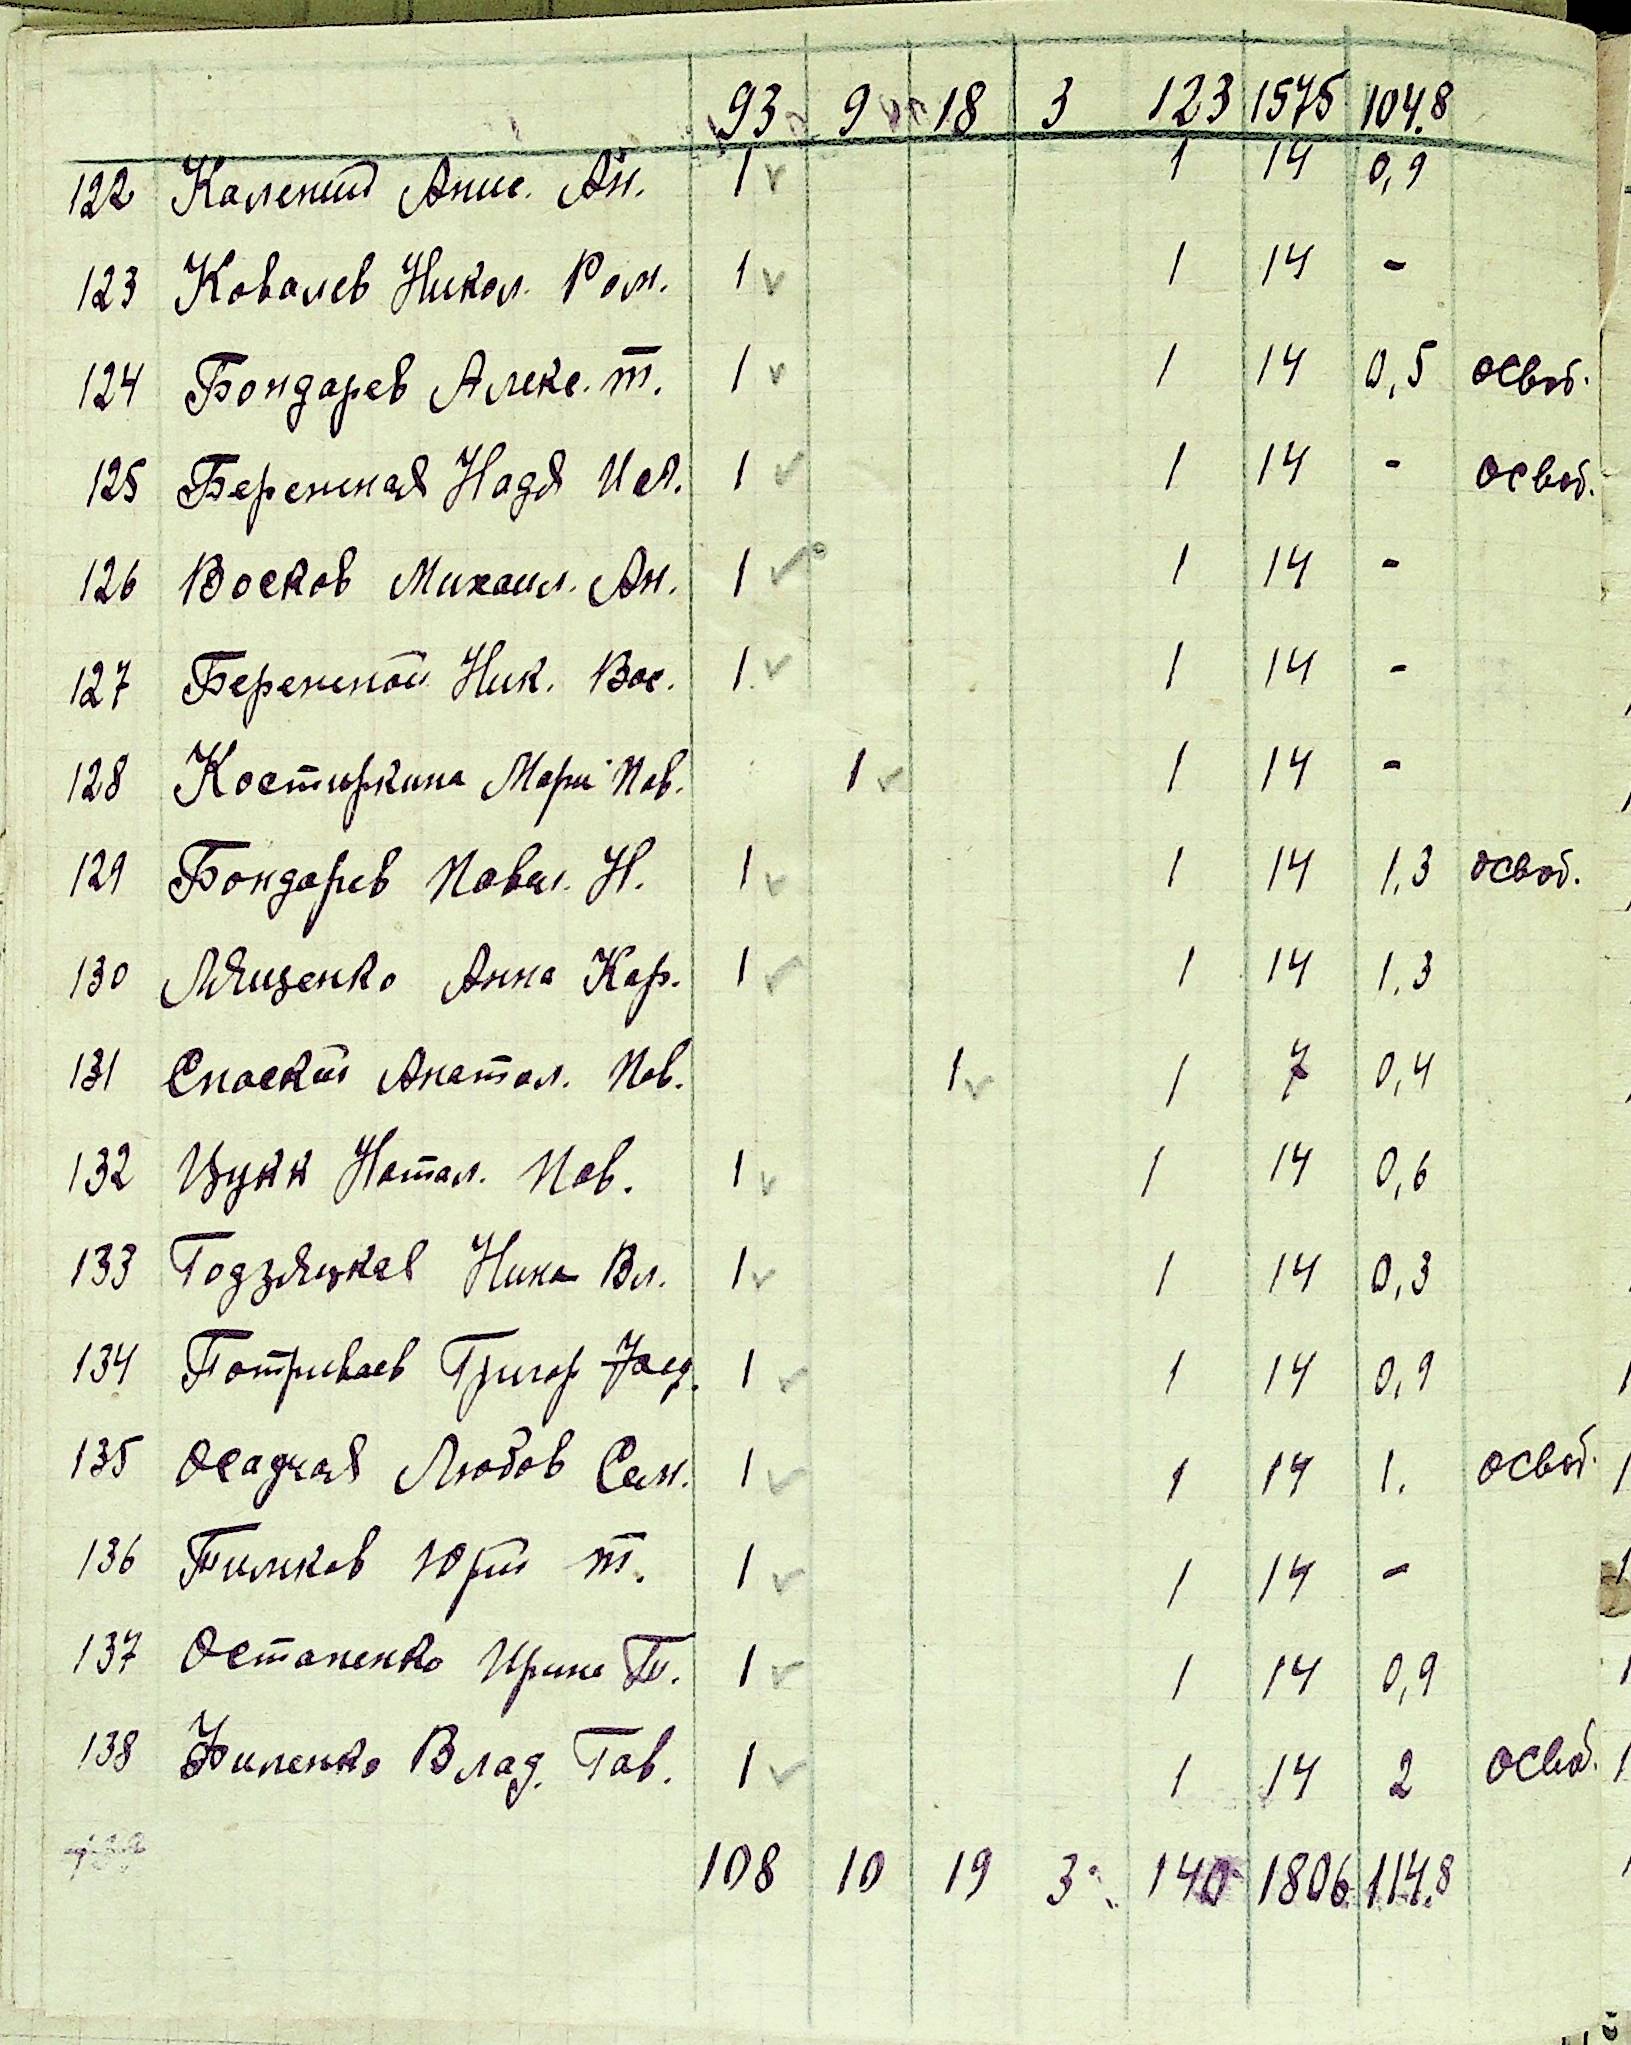 93 9 18 3 123 1575 104.8
122 Каленит Анис. Ан. 1 1 14 0,9
123 Ковалев Никол. Ром. 1 1 14 -
124 Бондарев Алекс. Т. 1 1 14 0,5 освоб.
125 Бережная Надя Ил. 1 1 14 - освоб.
126 Восков Михаил. Ан. 1 1 14 -
127 Бережной Ник. Вас. 1 1 14 -
128 Костиркина Мари Пав. 1 1 14 -
129 Бондарев Павел. Н. 1 1 14 1,3 освоб.
130 Лященко Анна Кар. 1 1 14 1.3
131 Спаский Анатол. Пав. 1 1 7 0,4
132 Цукк Натал. Пав. 1 1 14 0,6
133 Годзяцкая Нина Вл. 1 1 14 0,3
134 Потриваев Григор 1 1 14 0,9
135 Осадчая Любов Сем. 1 1 14 1. освоб.
136 Тилików Юрий Т. 1 1 14 -
137 Остапенко Ирина 1 1 14 0,9
138 Филенко Влад. Гав. 1 1 14 2 освоб.
108 10 19 3 140 1806 114.8